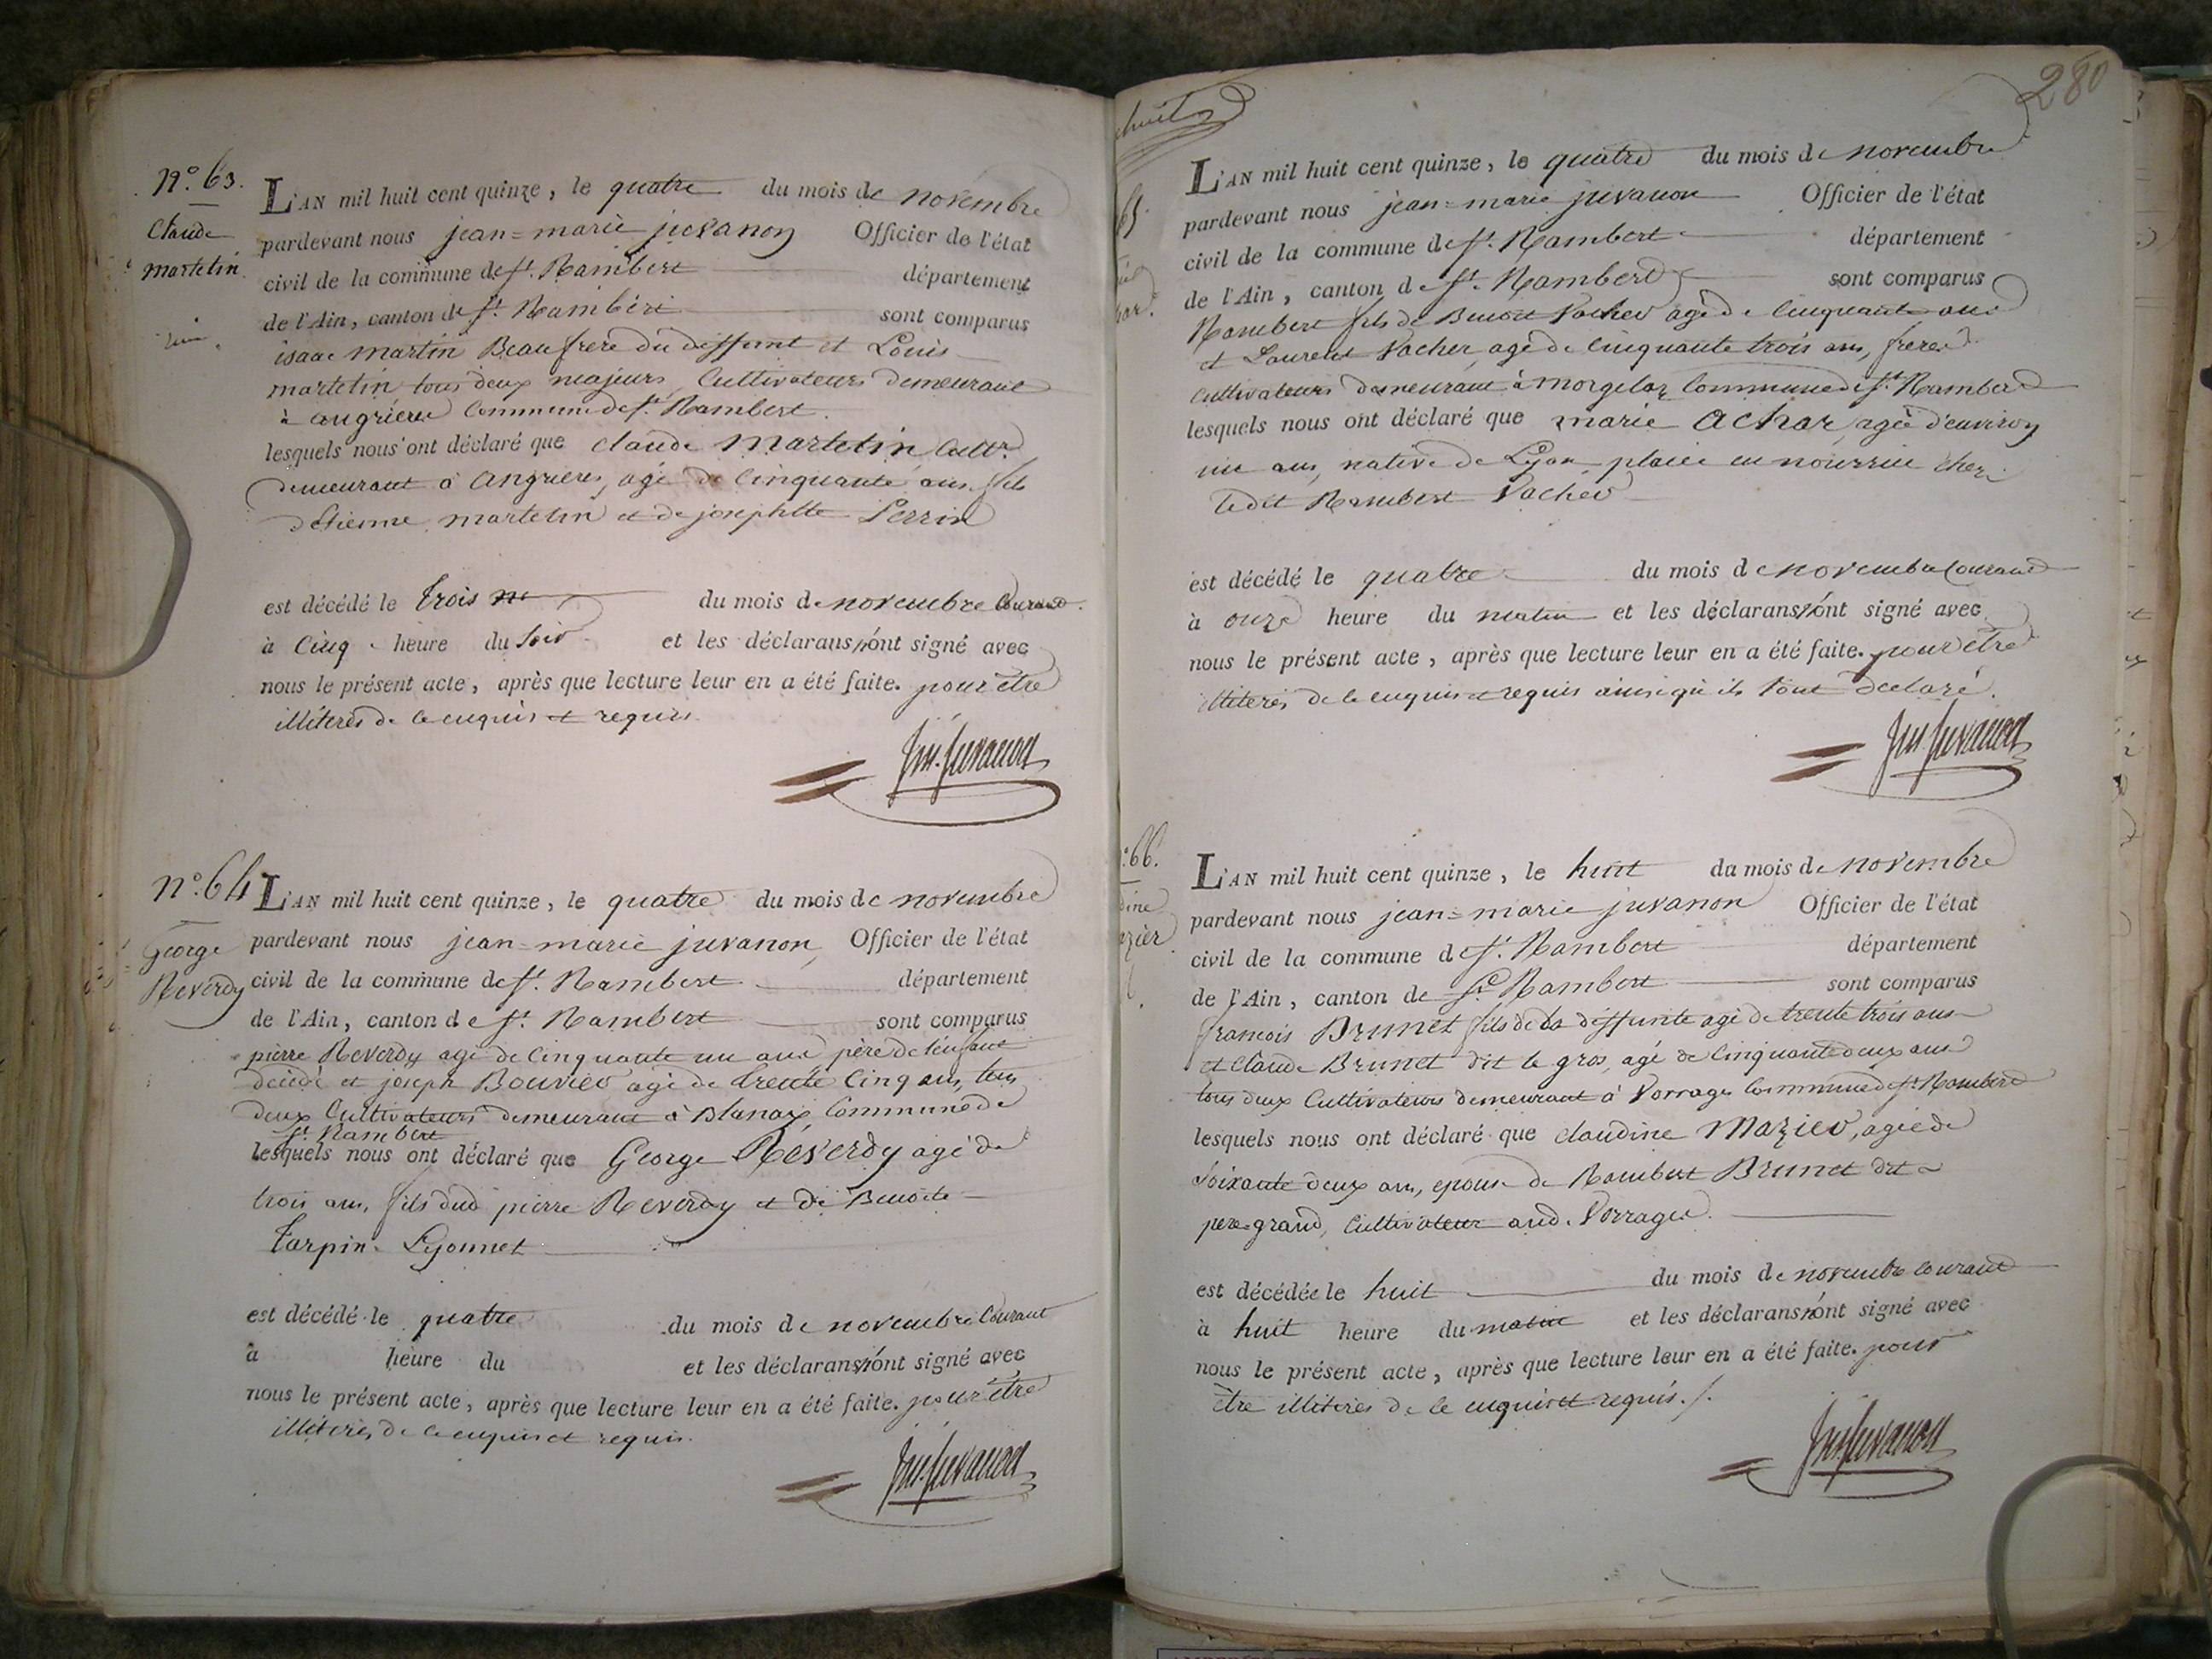 N.° 63.
Claude
martelin.
L'AN mil huit cent quinze, le quatre du mois de novembre
pardevant nous jean=marie juvanon Officier de l'état
civil de la commune de St. Rambert département
de l'Ain, canton de St. Rambert sont comparus
isaac martin Beaufrere du deffunt et Louis
martelin tous deux majeurs, Cultivateurs demeurant
à angrieres Commune de St. Rambert.
lesquels nous ont déclaré que claude martelin Cultr.
demeurant à angrieres, agé de Cinquante ans, fils
d'Etienne martelin et de josephtte Perrin
est décédé le trois du mois de novembre Courant.
à Cinq heure du Soir et les déclarans n'ont signé avec
nous le présent acte, après que lecture leur en a été faite. pour être
illiterés de ce enquis et requis.
Jm. Juvanon
n.° 64
George
Reverdy
L'AN mil huit cent quinze, le quatre du mois de novembre
pardevant nous jean-marie juvanon, Officier de l'état
civil de la commune de St. Rambert département
de l'Ain, canton de St. Rambert sont comparus
pierre Reverdy agé de Cinquante un ans père de l'enfant
décédé et joseph Bouvier agé de trente Cinq ans, tous
deux Cultivateurs demeurant à Blanaz Commune de
St. Rambert
lesquels nous ont déclaré que George Réverdy agé de
trois ans, fils dud pierre Reverdy et de Benoite
Tarpin Lyonnet
est décédé le quatre du mois de novembre Courant
à heure du et les déclarans n'ont signé avec
nous le présent acte, après que lecture leur en a été faite. pour être
illiterés de ce enquis et requis.
Jm. Juvanon
280
huit
65.
L'AN mil huit cent quinze, le quatre du mois de novembre
pardevant nous jean=marie juvanon Officier de l'état
civil de la commune de St. Rambert département
de l'Ain, canton de St. Rambert sont comparus
Rambert fils de Benoit Vacher agé de Cinquante ans
et Laurent Vacher, agé de Cinquante trois ans, freres
Cultivateurs demeurant à morgelaz Commune de St. Rambert
lesquels nous ont déclaré que marie Achar, agée d'environ
un an, native de Lyon placée en nourrice chez
ledit Rambert Vacher
est décédé le quatre du mois de novembre Courant
à onze heure du matin et les déclarans n'ont signé avec
nous le présent acte, après que lecture leur en a été faite. pour être
illiterés de ce enquis et requis ainsi qu'ils l'ont declaré.
Jm. Juvanon
.° 66.
dine
azier
L'AN mil huit cent quinze, le huit du mois de novembre
pardevant nous jean=marie juvanon Officier de l'état
civil de la commune de St. Rambert département
de l'Ain, canton de St. Rambert sont comparus
francois Brunet fils de la deffunte agé de trente trois ans
et Claude Brunet dit le gros, agé de Cinquante deux ans
tous deux Cultivateurs demeurant à Vorrages Commune de St. Rambert
lesquels nous ont déclaré que claudine Mazier, agée de
Soixante deux ans, epouse de Rambert Brunet dit
pere grand, Cultivateur aud. Vorrages.
est décédée le huit du mois de novembre Courant
à huit heure du matin et les déclarans n'ont signé avec
nous le présent acte, après que lecture leur en a été faite. pour
être illiterés de ce enquis et requis./.
Jm. Juvanon